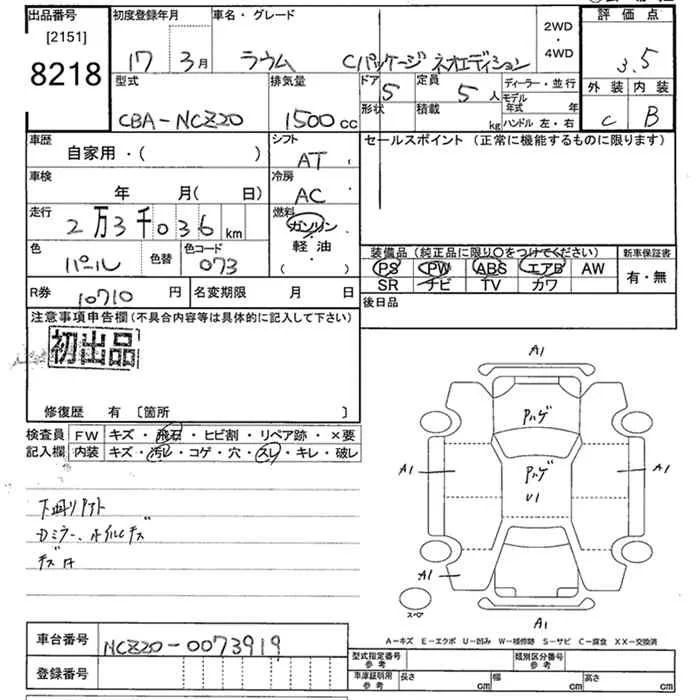 出品番号 初度登録年月 車名・グレード 2WD・4WD 評価点
[2151]
8218 17年 3月 ラウム Cパッケージ ネオエディション 3.5
型式 排気量 ドア 5 定員 5人 ディーラー・並行 外装 内装
CBA-NCZ20 1500cc 形状 積載 kg モデル年式 年 ハンドル 左・右 C B
車歴 自家用・( ) シフト AT セールスポイント (正常に機能するものに限ります)
車検 年 月( 日) 冷房 AC
走行 2万3千036km 燃料 ガソリン・軽油 ( )
色 パール 色替 色コード 073
装備品 (純正品に限り○をつけてください) 新車保証書
PS PW ABS エアB AW 有・無
SR ナビ TV カワ
R券 10710円 名変期限 月 日 後日品
注意事項申告欄(不具合内容等は具体的に記入して下さい)
初出品
修復歴 有 [箇所 ]
検査員記入欄 FW キズ・飛石・ヒビ割・リペア跡・×要
内装 キズ・汚レ・コゲ・穴・スレ・キレ・破レ
Dミラー、ホイルキズ
A1
Pハゲ
A1 Pハゲ A1
U1
A1
スペア
A1
A-キズ E-エクボ U-凹み W-補修跡 S-サビ C-腐食 XX-交換済
車台番号 NCZ20-0073919
登録番号
型式指定番号 参考 類別区分番号 参考
車庫証明用 参考 長さ cm 幅 cm 高さ cm